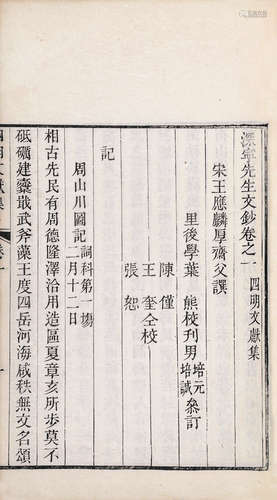 深寧先生文鈔卷之一 四明文獻集
宋王應麟厚齋父譔
里後學葉熊校刊男培元培誠叅訂
陳僅
王奎仝校
張恕
記
周山川圖記 詞科第一場二月十二日
相古先民有周德隆澤洽用造區夏章亥所歩莫不
砥礪建櫜戢武斧藻王度四岳河海咸秩無文名頌
四明文獻集 卷一 一